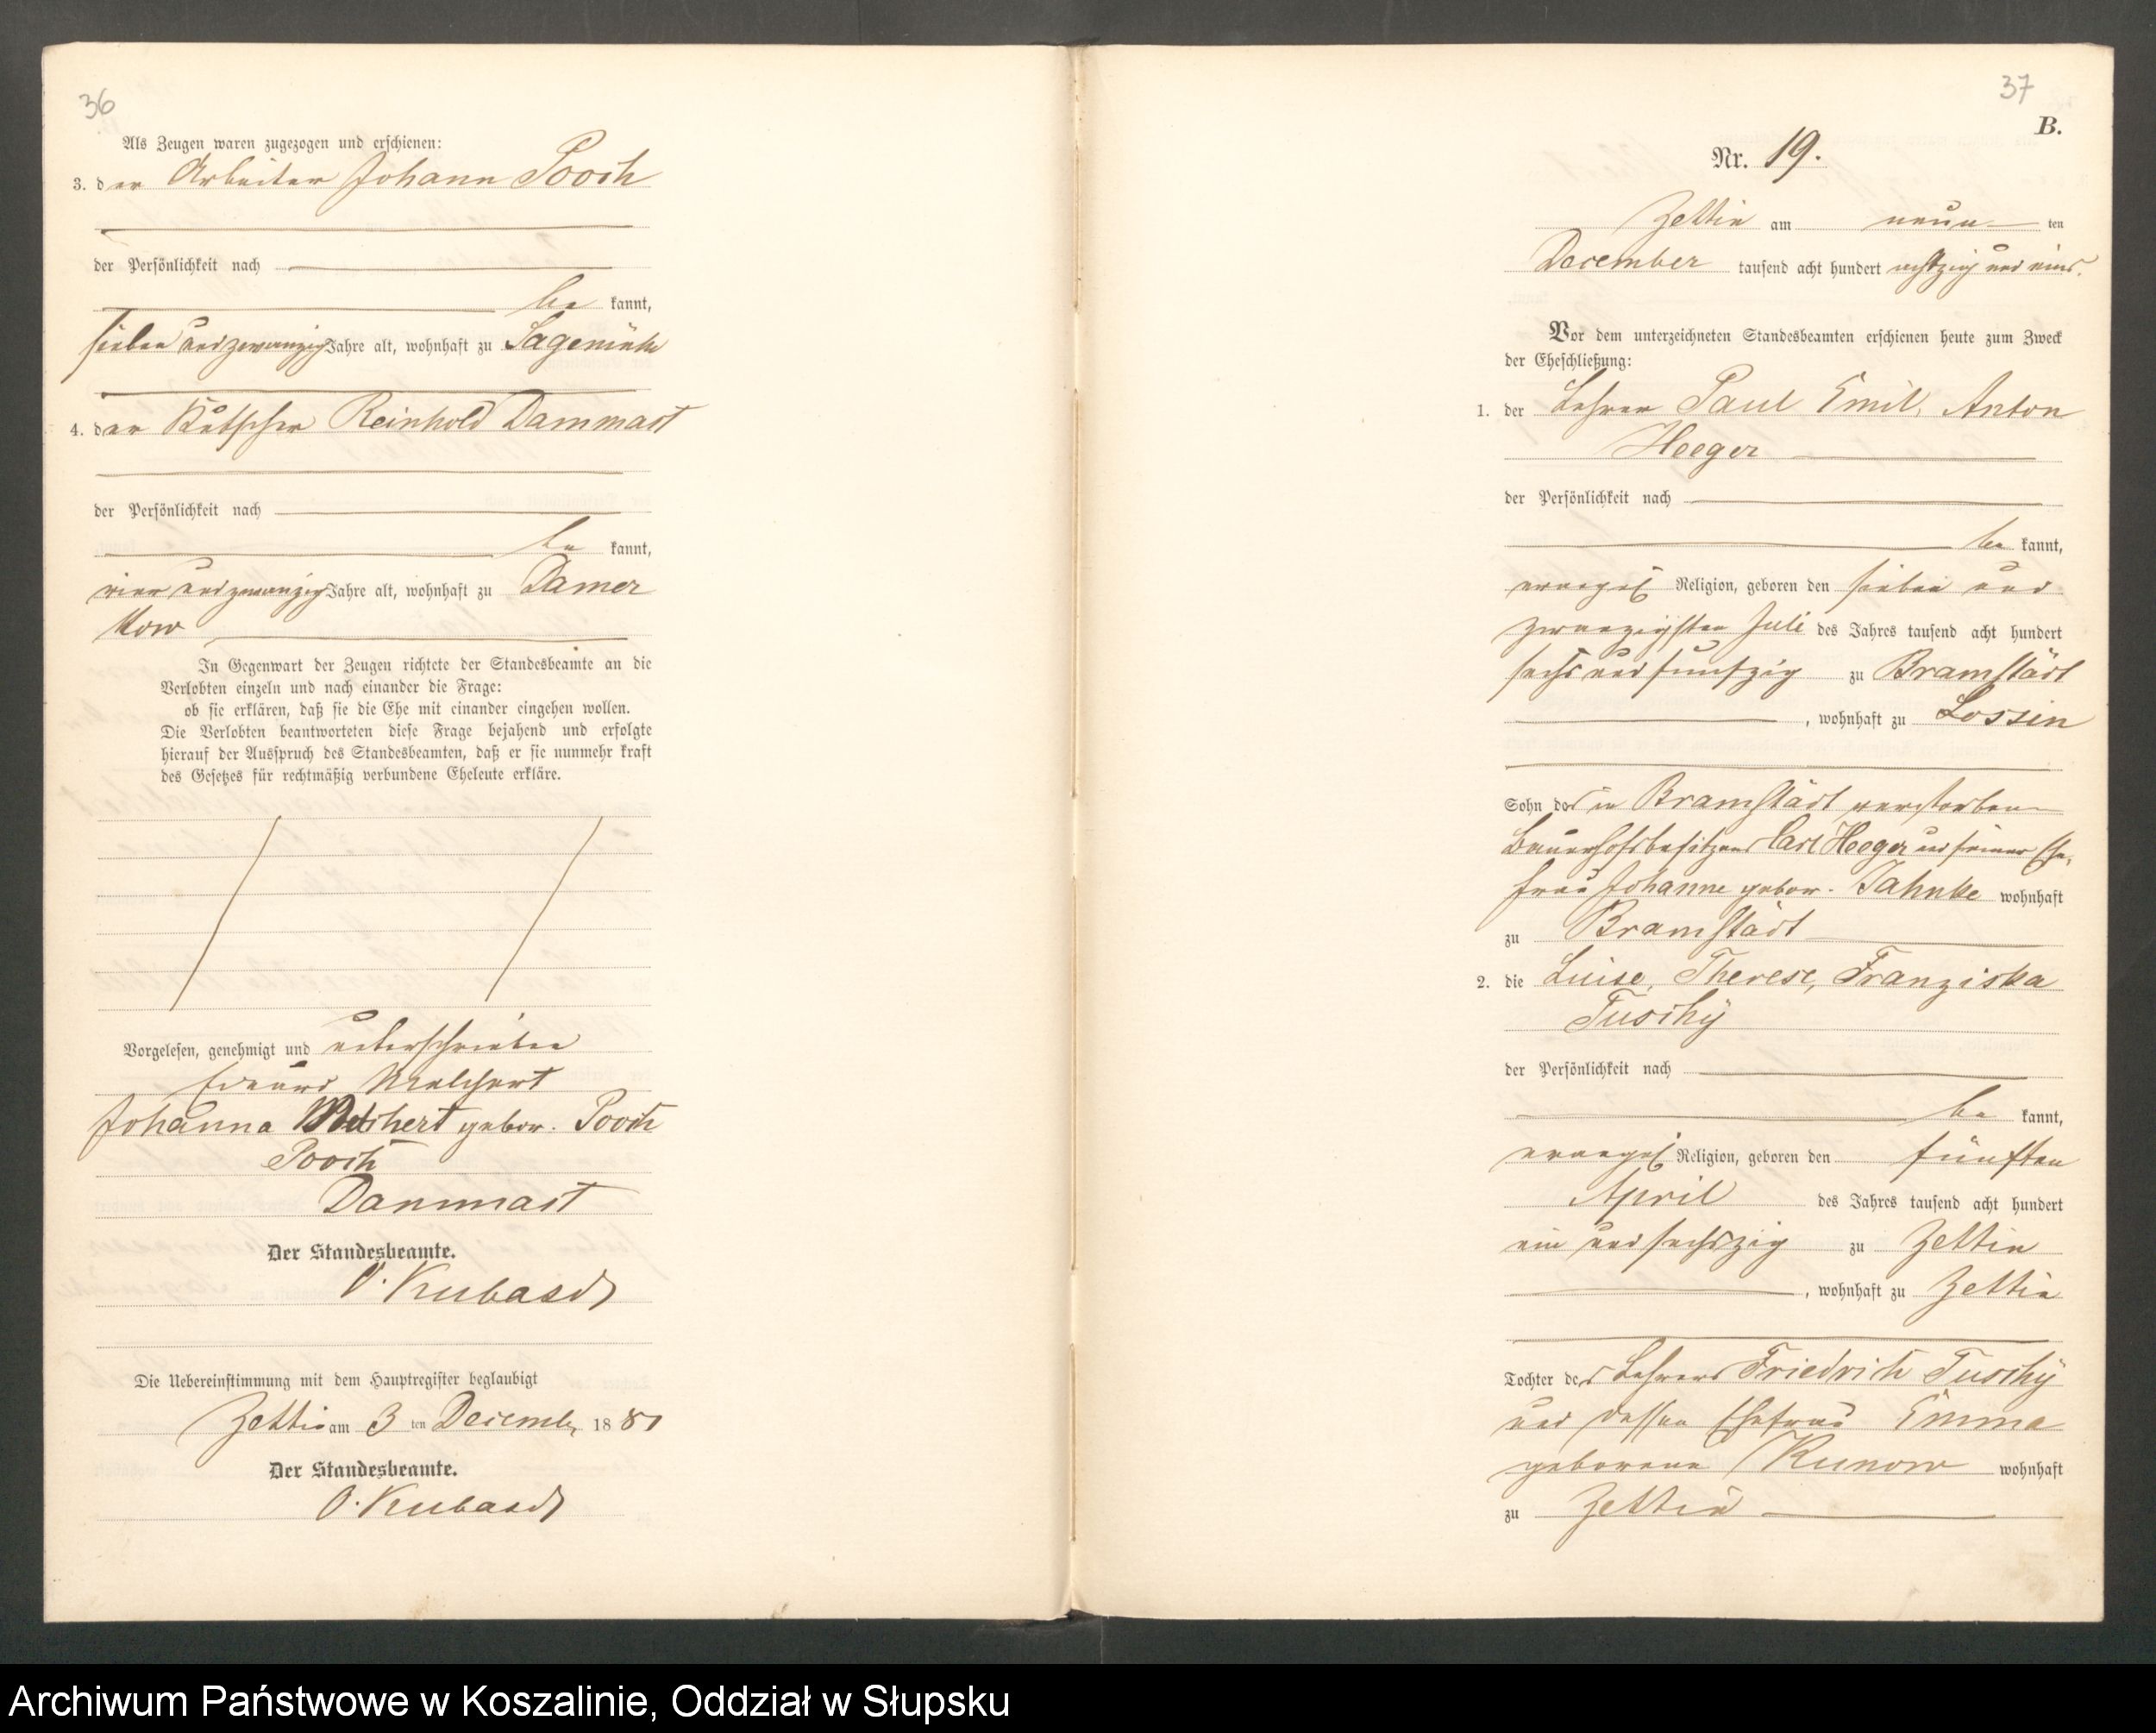 36
Als Zeugen waren zugezogen und erschienen:
3. der Arbeiter Johann Pooch
der Persönlichkeit nach
be kannt,
sieben und zwanzig Jahre alt, wohnhaft zu Sagemühle
4. der Kutscher Reinhold Dammast
der Persönlichkeit nach
be kannt,
vier und zwanzig Jahre alt, wohnhaft zu Damer
kow
In Gegenwart der Zeugen richtete der Standesbeamte an die
Verlobten einzeln und nach einander die Frage:
ob sie erklären, daß sie die Ehe mit einander eingehen wollen.
Die Verlobten beantworteten diese Frage bejahend und erfolgte
hierauf der Ausspruch des Standesbeamten, daß er sie nunmehr kraft
des Gesetzes für rechtmäßig verbundene Eheleute erkläre.
Vorgelesen, genehmigt und unterschrieben
Eduard Melchert
Johanna Melchert gebor. Pooch
Pooch
Dammast
Der Standesbeamte.
O. Kubasch
Die Uebereinstimmung mit dem Hauptregister beglaubigt
Zettin am 3 ten Decemb. 1881
Der Standesbeamte.
O. Kubasch
37
B.
Nr. 19.
Zettin am neun ten
December tausend acht hundert achtzig und eins.
Vor dem unterzeichneten Standesbeamten erschienen heute zum Zweck
der Eheschließung:
1. der Lehrer Paul Emil, Anton
Heeger
der Persönlichkeit nach
be kannt,
evangel Religion, geboren den sieben und
zwanzigsten Juli des Jahres tausend acht hundert
sechs und fünfzig zu Bramstädt
, wohnhaft zu Lossin
Sohn des in Bramstädt verstorbenen
Bauerhofsbesitzers Carl Heeger und seiner Ehe,
frau Johanne gebor. Jahnke wohnhaft
zu Bramstädt
2. die Luise, Therese, Franziska
Tuschÿ
der Persönlichkeit nach
be kannt,
evangel Religion, geboren den fünften
April des Jahres tausend acht hundert
ein und sechszig zu Zettin
, wohnhaft zu Zettin
Tochter des Lehrers Friedrich Tuschÿ
und dessen Ehefrau Emma
geborene Kunow wohnhaft
zu Zettin
Archiwum Państwowe w Koszalinie, Oddział w Słupsku